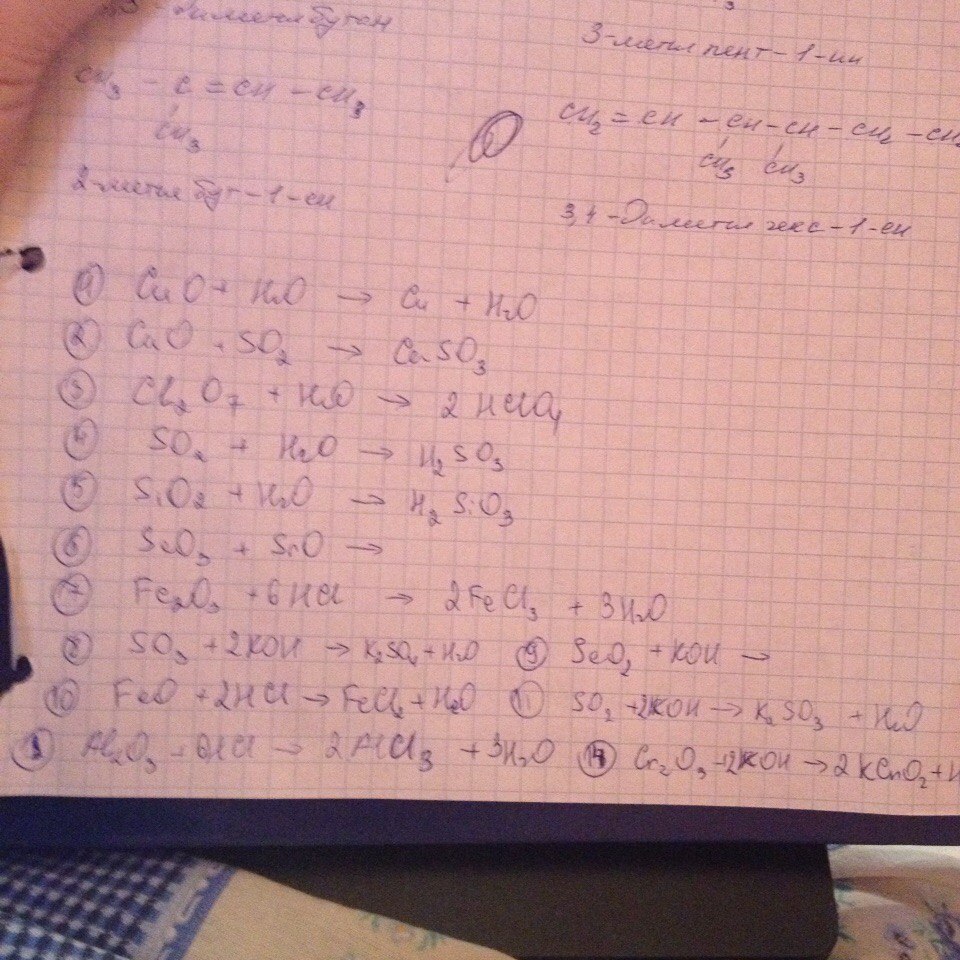 диметилбутан
3-метил пент-1-ин
CH3 - C = CH - CH3
CH3
CH2 = CH - CH - CH - CH2 - CH
CH3 CH3
2-метил бут-1-ен
3,4-Диметил гекс-1-ен
1 CuO + H2O → Cu + H2O
2 CaO + SO2 → CaSO3
3 Cl2O7 + H2O → 2 HClO4
4 SO2 + H2O → H2SO3
5 SiO2 + H2O → H2SiO3
6 SeO3 + SrO →
7 Fe2O3 + 6HCl → 2FeCl3 + 3H2O
8 SO3 + 2KOH → K2SO4 + H2O 9 SeO2 + KOH →
10 FeO + 2HCl → FeCl2 + H2O 11 SO2 + 2KOH → K2SO3 + H2O
Al2O3 + 6HCl → 2AlCl3 + 3H2O Cr2O3 + 2KOH → 2KCrO2 + H